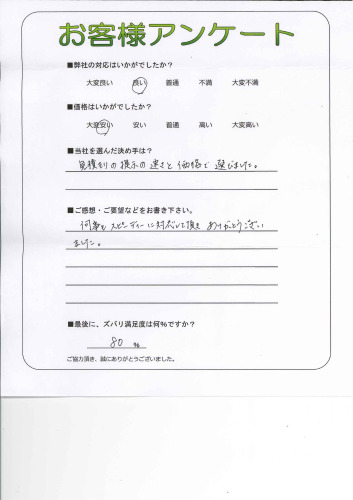 お客様アンケート
■弊社の対応はいかがでしたか？
大変良い　良い　普通　不満　大変不満
■価格はいかがでしたか？
大変安い　安い　普通　高い　大変高い
■当社を選んだ決め手は？
見積りの提示の速さと価格で選びました。
■ご感想・ご要望などをお書き下さい。
何事もスピーディーに対応して頂きありがとうござい
ました。
■最後に、ズバリ満足度は何％ですか？
80 ％
ご協力頂き、誠にありがとうございました。